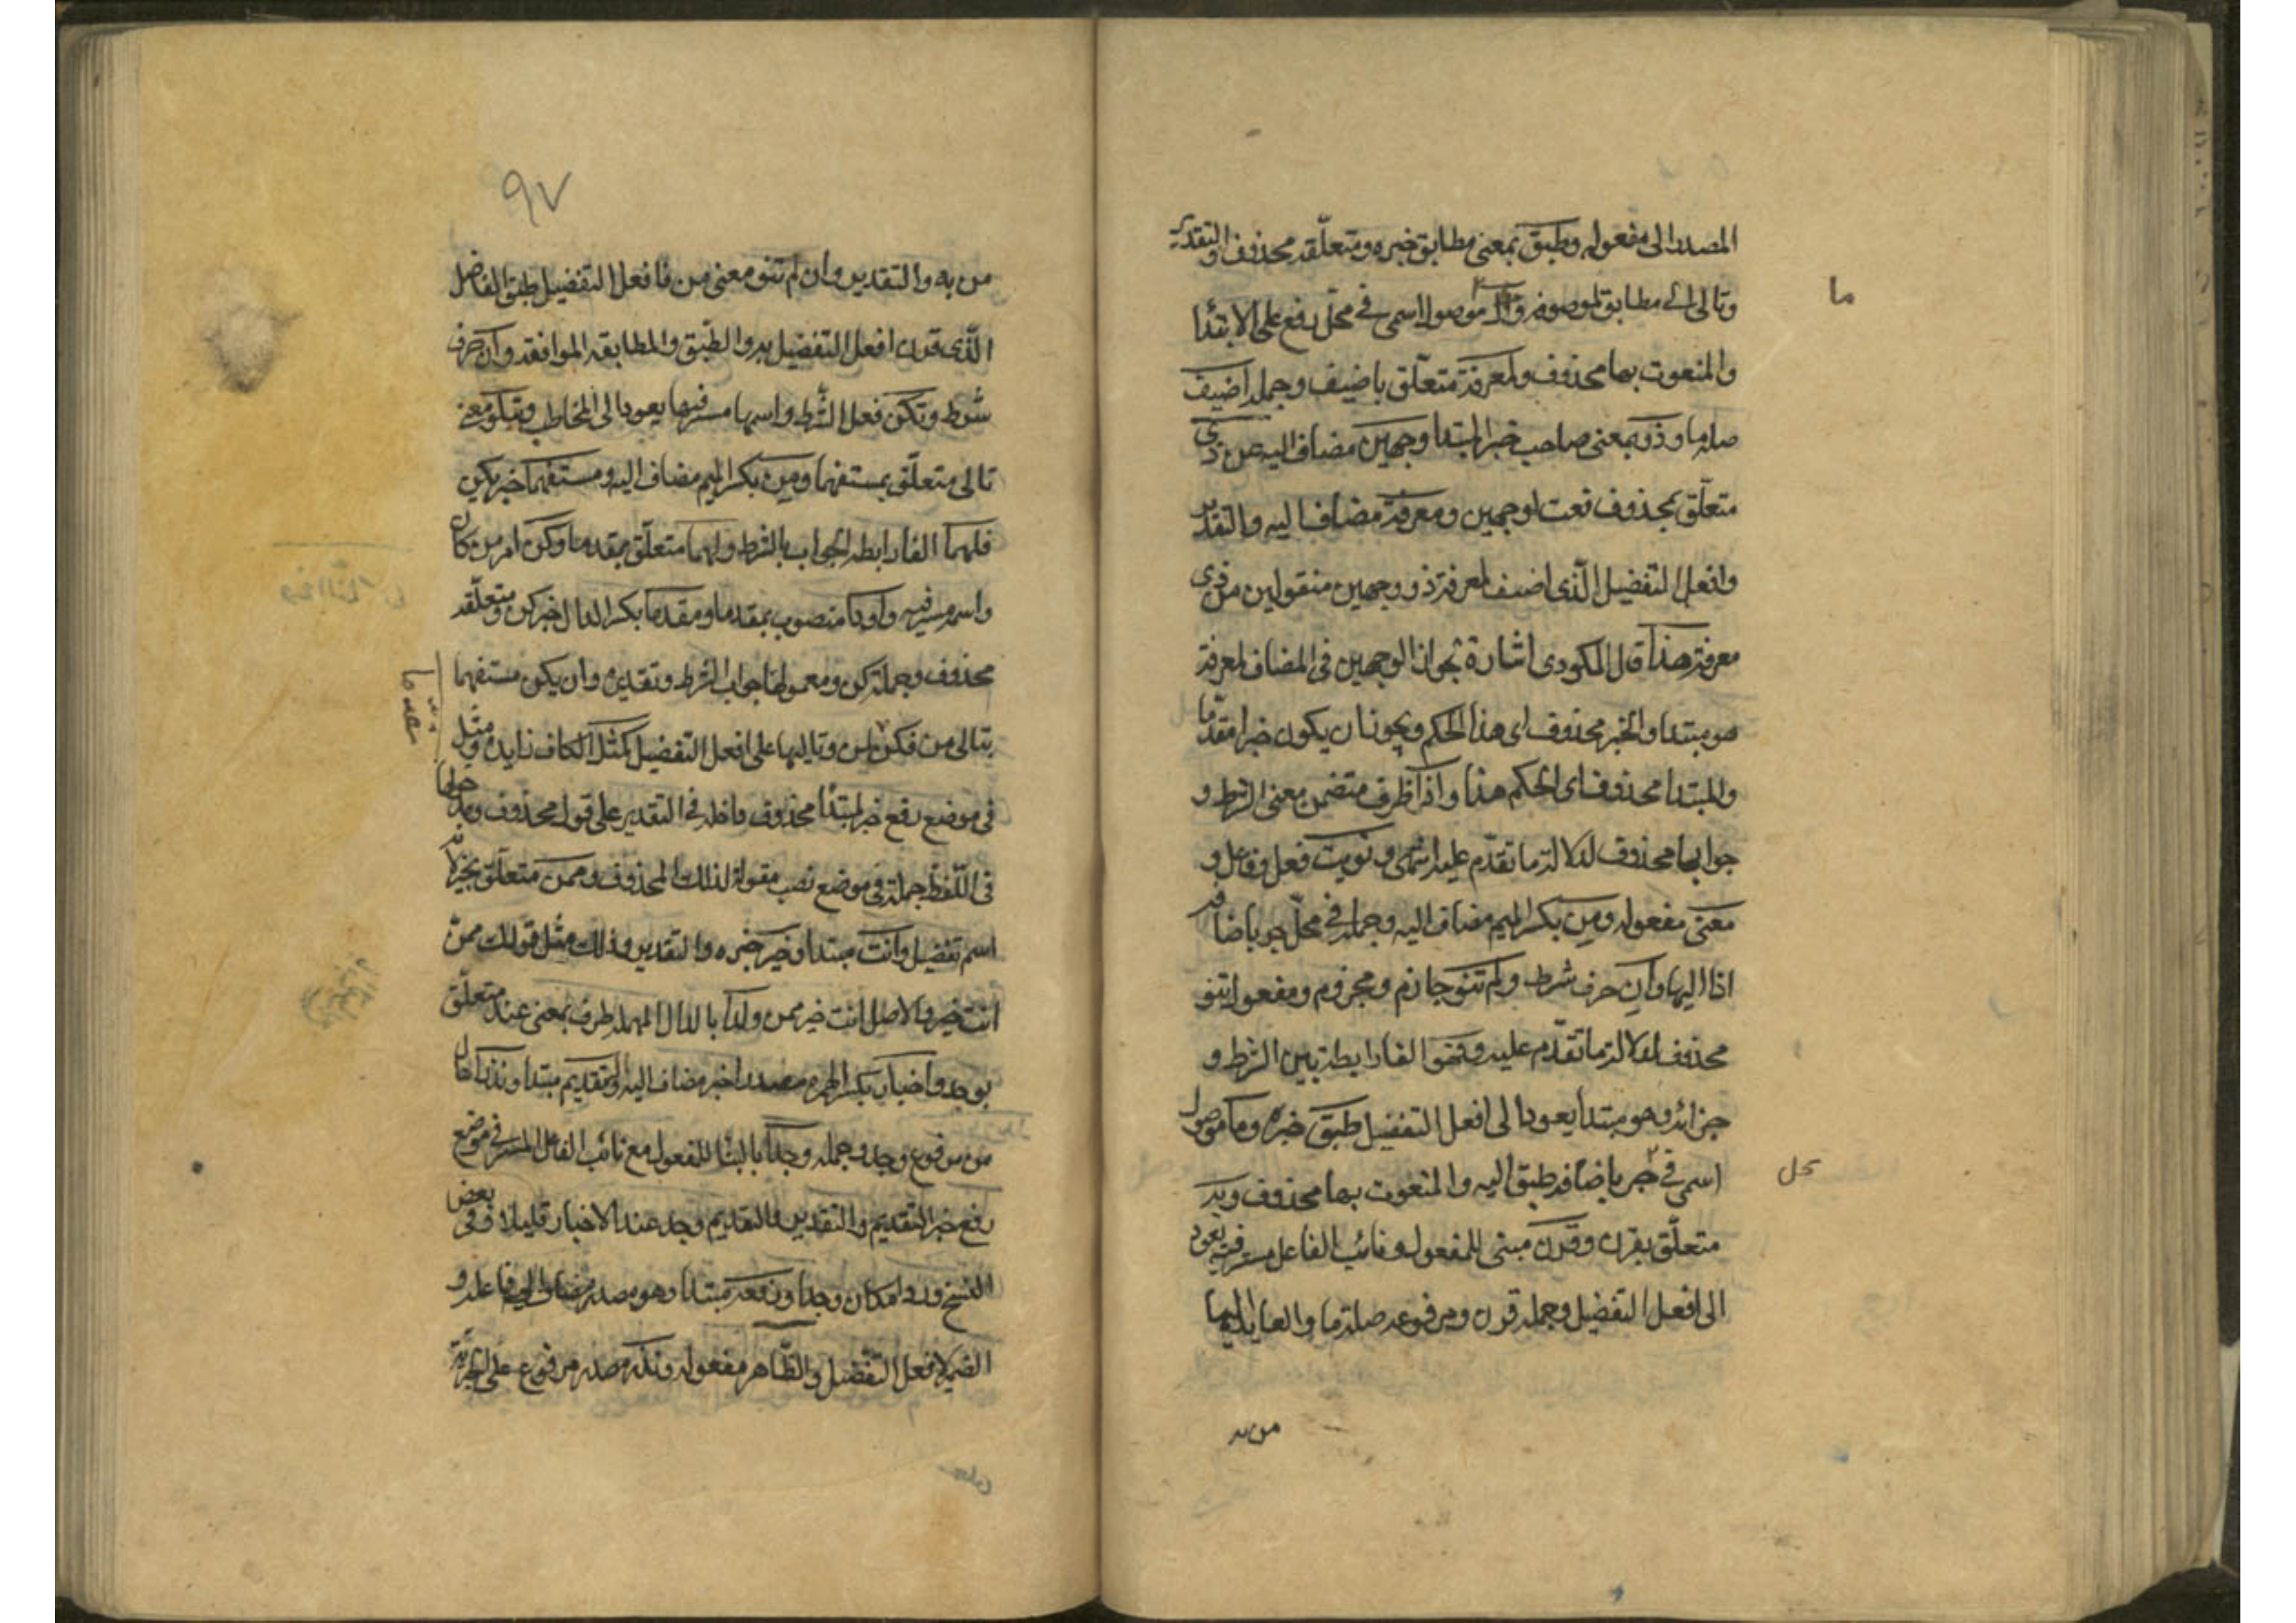 المصدر الى مفعوله وطبق بمعنى مطابق خبره ومتعلقه محذوف والتقدير
وتالى ال مطابق لموصوفه وما موصول اسمى فى محل رفع على الابتدا
ما
والمنعوت بها محذوف ولمعرفة متعلق باضيف وجملة اضيف
صلة ما وذو بمعنى صاحب خبر المبتدا وجهين مضاف اليه عن ذى
متعلق بمحذوف نعت لوجهين ومعرفة مضاف اليه والتقدير
وافعل التفضيل الذى اضيف لمعرفة ذو وجهين منقولين عن ذى
معرفة هذا قال المكودى اشارة لجواز الوجهين فى المضاف لمعرفة
هو مبتدا والخبر محذوف اى هذا الحكم ويجوز ان يكون خبرا مقدما
والمبتدا محذوف اى الحكم هذا واذا ظرف متضمن معنى الشرط و
جوابها محذوف لدلالة ما تقدم عليه انتهى ونويت فعل وفاعل و
معنى مفعوله ومن بكسر الميم مضاف اليه وجملة فى محل جر باضافة
اذا اليها وان حرف شرط ولم تنو جازم ومجزوم ومفعول تنو
محذوف لدلالة ما تقدم عليه وفهو الفا رابطة بين الشرط و
جزائه وهو مبتدا يعود الى افعل التفضيل طبق خبره وما موصول
اسمى فى جر باضافة طبق اليه والمنعوت بها محذوف وبه
محل
متعلق بقرن وقرن مبنى للمفعول ونائب الفاعل مستتر فيه يعود
الى افعل التفضيل وجملة قرن ومرفوعه صلة ما والعايد اليها
من به
٩٧
من به والتقدير وان لم تنو معنى من فافعل التفضيل طبق الفاضل
الذى قرن افعل التفضيل به والطبق والمطابقة الموافقة وان حرف
شرط وتكن فعل الشرط واسمها مستتر فيها يعود الى المخاطب وبتلو معنى
تالى متعلق بمستفهما ومن بكسر الميم مضاف اليه ومستفهما خبر تكن
فلهما الفا رابطة لجواب الشرط ولهما متعلق بمقدما وكن امر من كان
واسمه مستتر فيه وابدا منصوب بمقدما ومقدما بكسر الدال خبر كن ومتعلقه
محذوف وجملة كن ومعمولها جواب الشرط وتقديره وان تكن مستفهما
مقدما
بتالى من فكن لمن وتاليها على افعل التفضيل كمثل الكاف زايدة ومثل
فى موضع رفع خبر لمبتدا محذوف داخلة فى التقدير على قول محذوف ومدخولها
فى اللفظ جملة فى موضع نصب مقولة لذلك المحذوف وممن متعلق بخير لانه
اسم تفضيل وانت مبتدا وخير خبره والتقدير وذلك مثل قولك ممن
انت خير والاصل انت خير ممن ولدا بالدال المهملة ظرف بمعنى عند متعلق
بوجد واخبار بكسر الهمزة مصدر اخبر مضاف اليه والتقديم مبتدا ونزرا حال
من مرفوع وجد وجملة وجدا بالبنا للمفعول مع نائب الفاعل المستتر فى موضع
رفع خبر التقديم والتقدير والتقديم وجد عند الاخبار قليلا وفى بعض
النسخ وردا مكان وجدا ورفعه مبتدا وهو مصدر مضاف الى فاعله و
الضمير لافعل التفضيل والظاهر مفعوله ونزر مصدر مرفوع على الخبرية